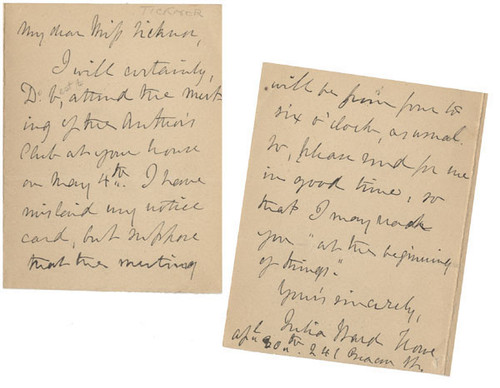 TICKNOR
My dear Miss Ticknor,
I will certainly,
D. v., attend the meet
ing of the Author's
Club at your house
on May 4th. I have
mislaid my notice
card, but suppose
that the meeting
will be from four to
six o'clock, as usual
so, please send for me
in good time, so
that I may reach
you "at the beginning
of things."
Yours sincerely,
Julia Ward Howe
Apl. 30th. 241 Beacon St.